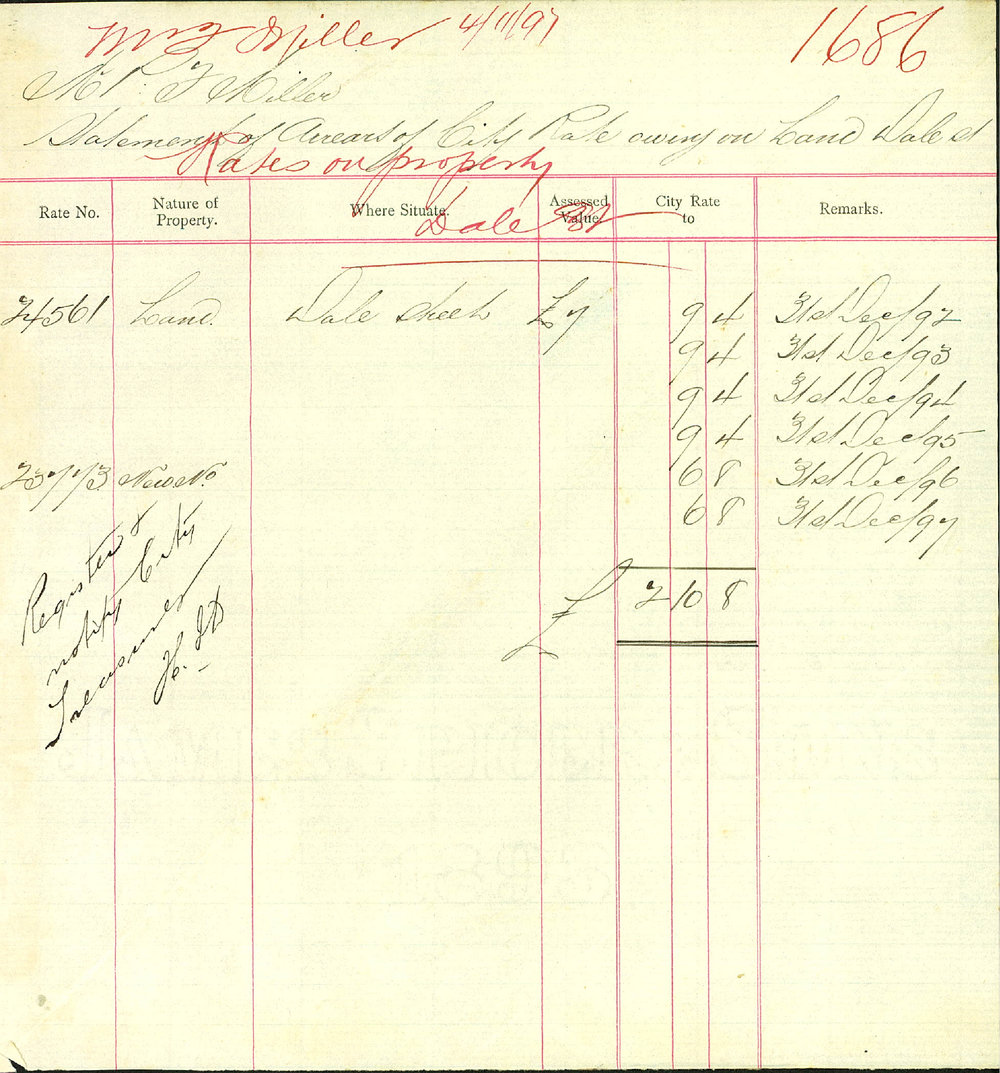 Mr F Miller 4/11/97 1686
Mr F Miller
Statement of Arrears of City Rate owing on Land Dale St
Rates on property
Dale St
Rate No. Nature of Property. Where Situate. Assessed Value. City Rate to Remarks.
24561 Land. Dale Street £7 9 4 31st Dec/92
9 4 31st Dec/93
9 4 31st Dec/94
9 4 31st Dec/95
23773 New No. 6 8 31st Dec/96
6 8 31st Dec/97
£ 2 10 8
Register &
notify City
Treasurer